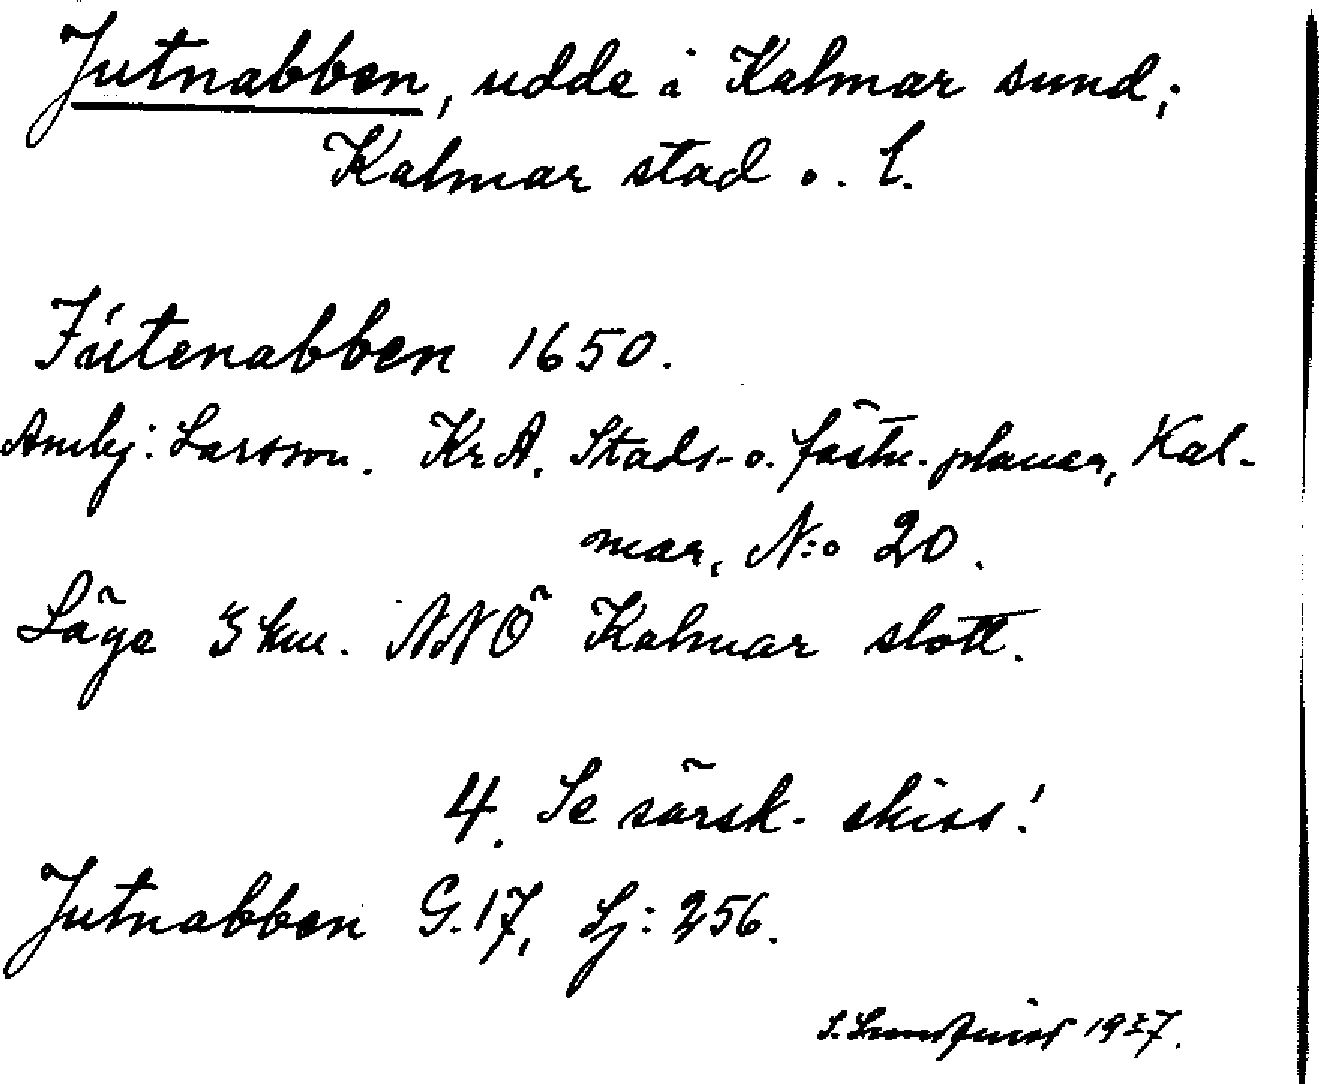 Jutnabben, udde i Kalmar sund;
Kalmar stad o. l.
Jútenabben 1650.
Ambj: Larsson. KrA. Stads- o. fästn. planer, Kal-
mar, N:o 20.
Läge 3 km. NNÖ Kalmar slott.
4. Se särsk. skiss!
Jutnabben G.17, Lj: 256.
S. Lundquist 1927.